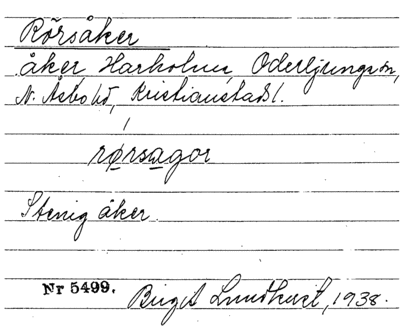 Rörsåker
åker, Harholma, Oderljunga sn,
N. Åsbo hd, Kristianstads l.
rørsagor
Stenig åker.
Nr 5499.
Birgit Lundkvist, 1938.